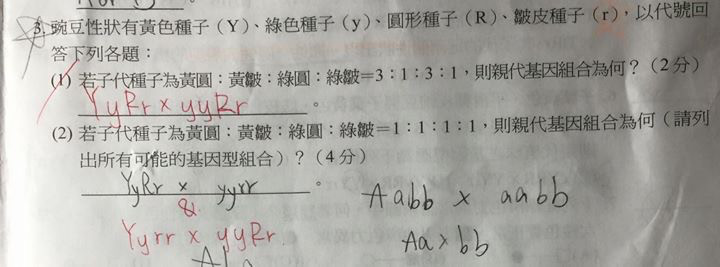 3. 豌豆性狀有黃色種子（Y）、綠色種子（y）、圓形種子（R）、皺皮種子（r），以代號回
答下列各題：
(1) 若子代種子為黃圓：黃皺：綠圓：綠皺＝3：1：3：1，則親代基因組合為何？（2分）
YyRr × yyRr 。
(2) 若子代種子為黃圓：黃皺：綠圓：綠皺＝1：1：1：1，則親代基因組合為何（請列
出所有可能的基因型組合）？（4分）
YyRr × yyrr 。
&
Aabb × aabb
Yyrr × yyRr
Aa × bb